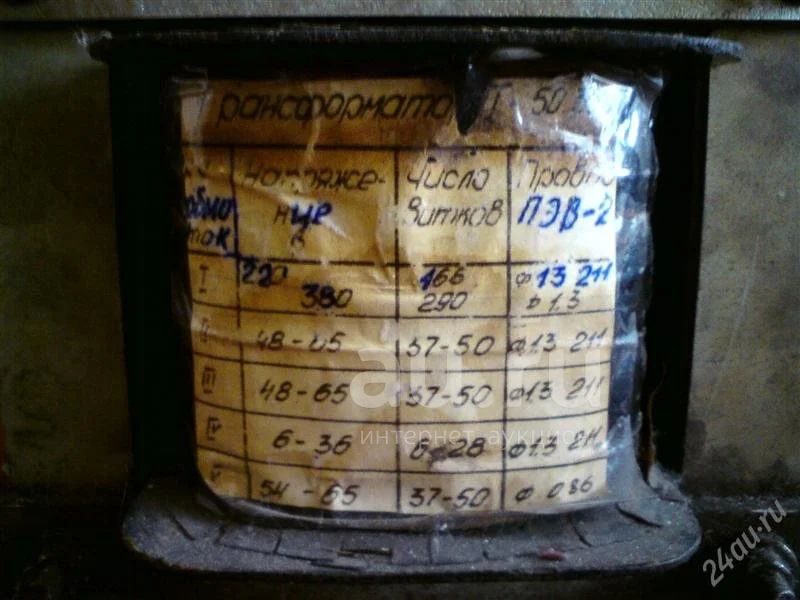 Трансформатор 50
обмо
ток
Напряже-
ние
В
Число
витков
Провод
ПЭВ-2
I 220 166 ф 1.3 2П
380 290 ф 1.3
II 48-65 37-50 ф 1.3 2П
III 48-65 37-50 ф 1.3 2П
IV 6-36 6-28 ф 1.3 2П
V 54-65 37-50 ф 086
au.ru
интернет-аукцион
24au.ru